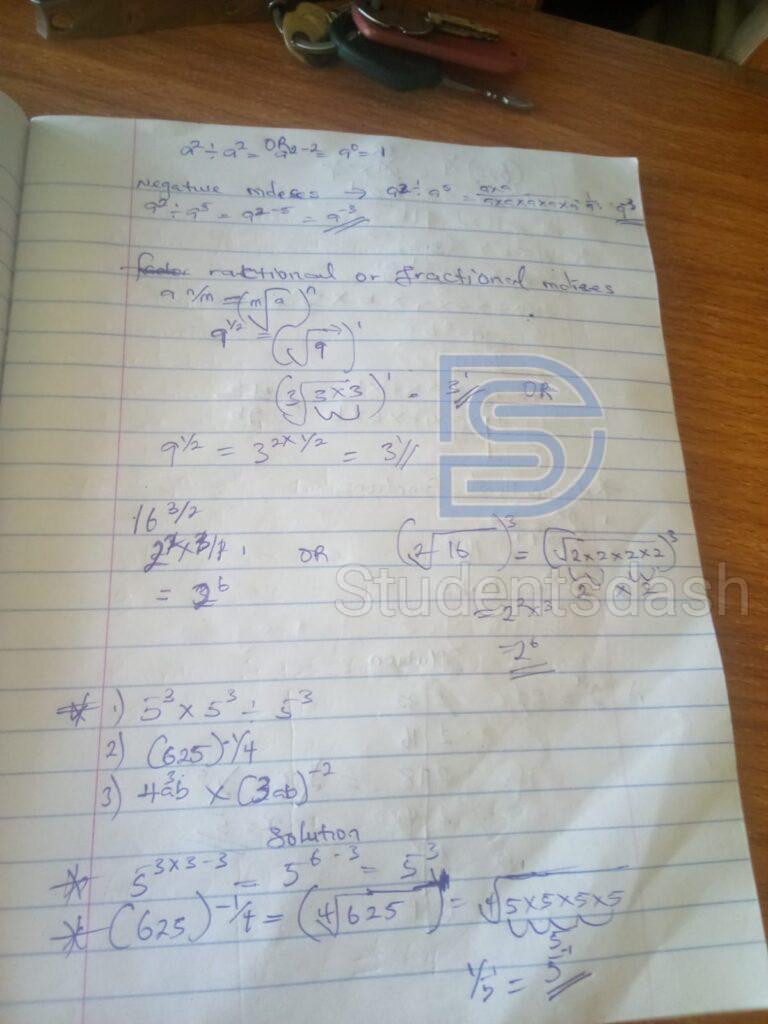 a² ÷ a² = OR a²⁻² = a⁰ = 1
Negative indices → a² ÷ a⁵ = a×a / a×a×a×a×a = 1/a³ = a⁻³
a² ÷ a⁵ = a²⁻⁵ = a⁻³
rational or fractional indices
a n/m = (m√a)ⁿ
9^1/2 = (√9)¹
(3√3×3)¹ = 3¹ OR
9^1/2 = 3^2×1/2 = 3¹
16^3/2
OR (2√16)³ = (√2×2×2×2)³
2 × 2
= 2^2×3
= 2⁶
1) 5³ × 5³ ÷ 5³
2) (625)^-1/4
3) 4a³b × (3ab)⁻²
Solution
5^3×3-3 = 5^6-3 = 5³
(625)^-1/4 = (4√625) = 4√5×5×5×5
5
1/5 = 5⁻¹
Studentsdash